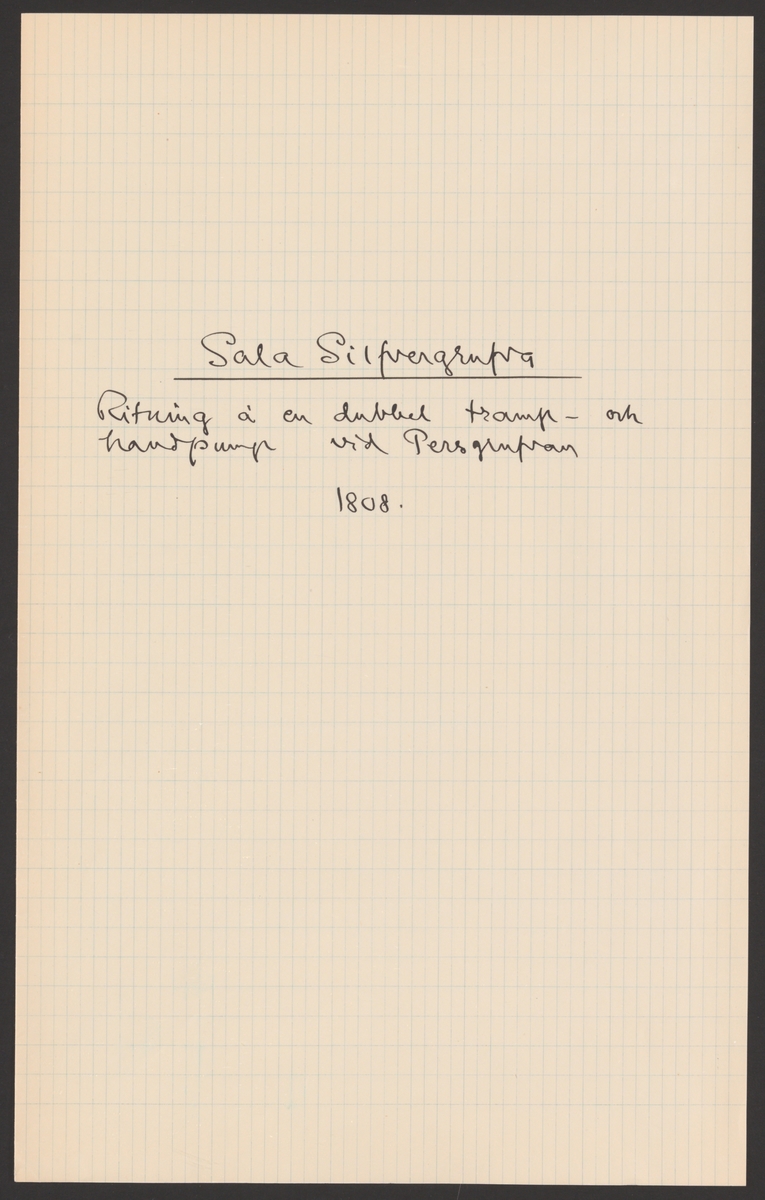 Sala Silfvergrufva
Ritning å en dubbel tramp- och
handpump vid Persgrufvan
1808.